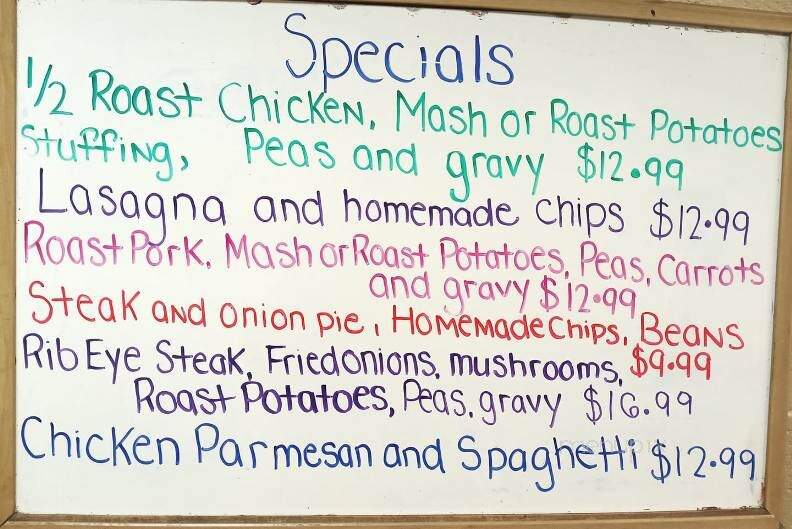 Specials
1/2 Roast Chicken, Mash or Roast Potatoes
Stuffing, Peas and gravy $12.99
Lasagna and homemade chips $12.99
Roast Pork, Mash or Roast Potatoes, Peas, Carrots
and gravy $12.99
Steak and onion pie, Homemade Chips, Beans
$9.99
Rib Eye Steak, Fried onions, mushrooms,
Roast Potatoes, Peas, gravy $16.99
Chicken Parmesan and Spaghetti $12.99